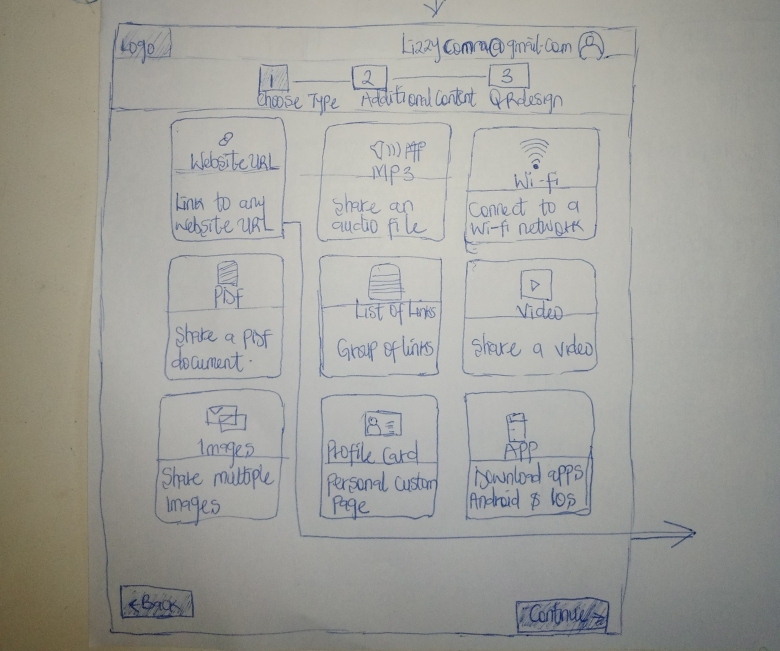 Logo
Lizzycomra@gmail.com
1 2 3
Choose Type Additional Content QRdesign
Website URL
Link to any
website URL
MP3
Share an
audio file
Wi-fi
Connect to a
Wi-fi network
PDf
Share a PDf
document.
List of Links
Group of links
Video
Share a video
Images
Share multiple
Images
Profile Card
Personal Custom
Page
APP
Download apps
Android & Ios
Back
Continue